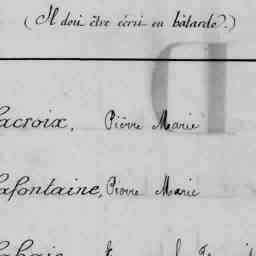 (Il doit être écrit en bâtarde.)
acroix, Pierre Marie
afontaine, Pierre Marie